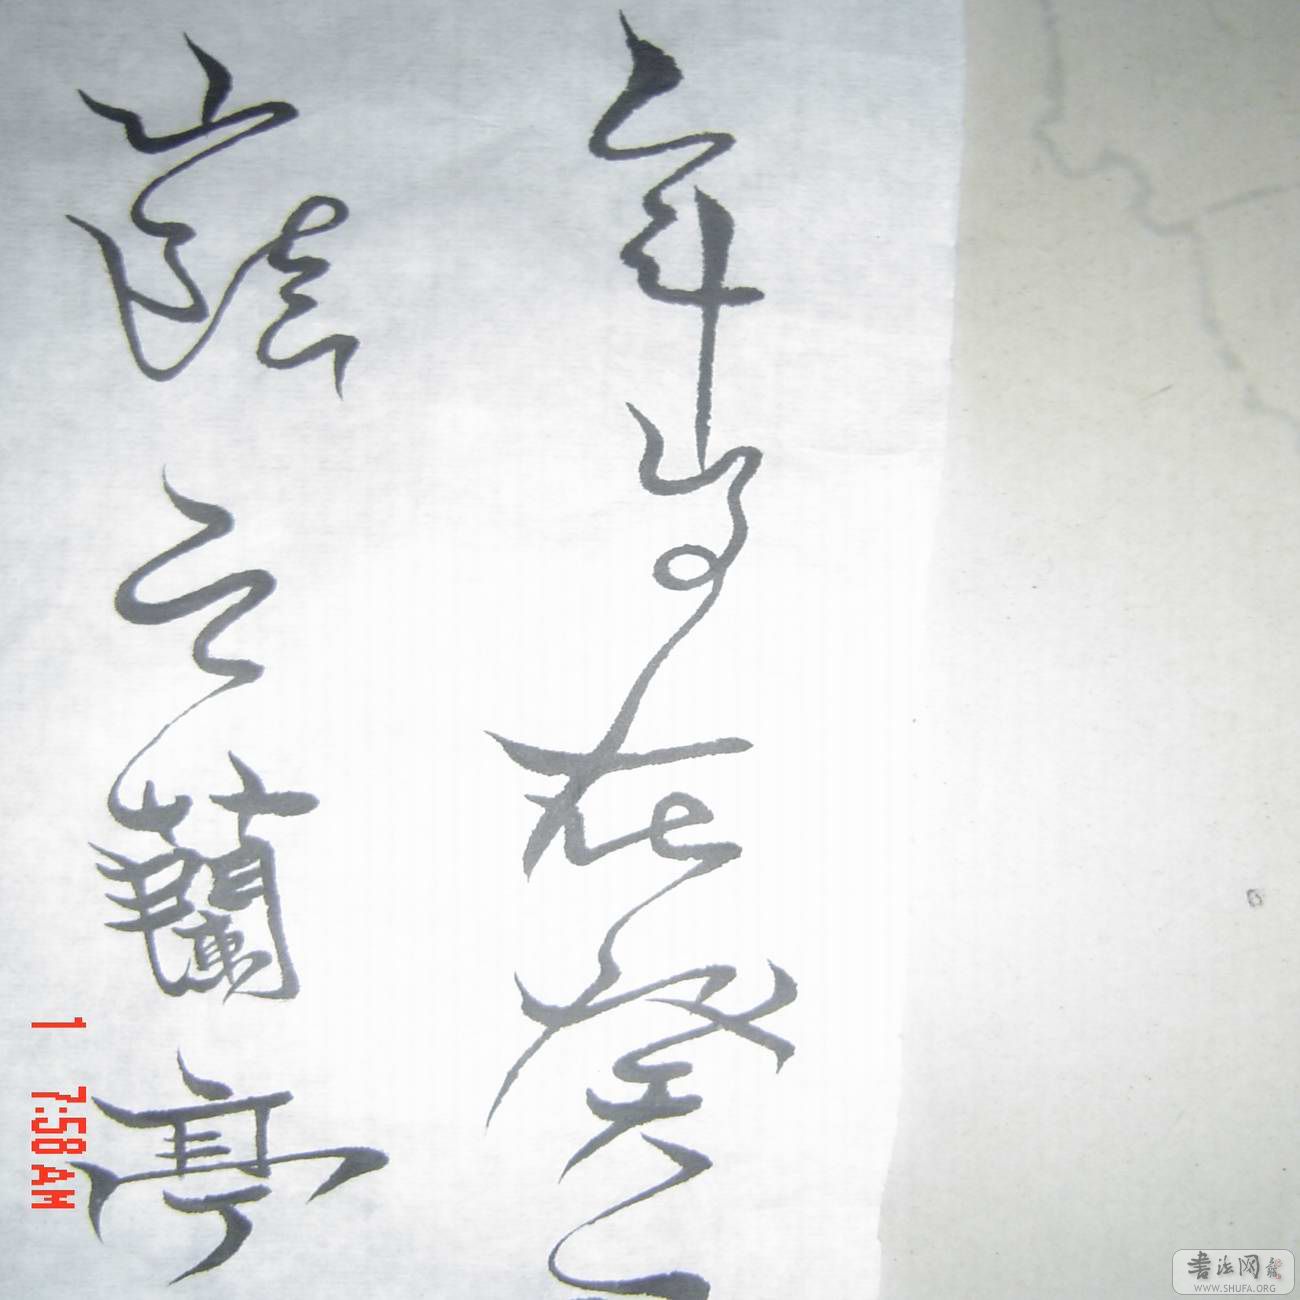 年岁在癸
山陰之蘭亭
1 7:58 AM
書法网
WWW.SHUFA.ORG